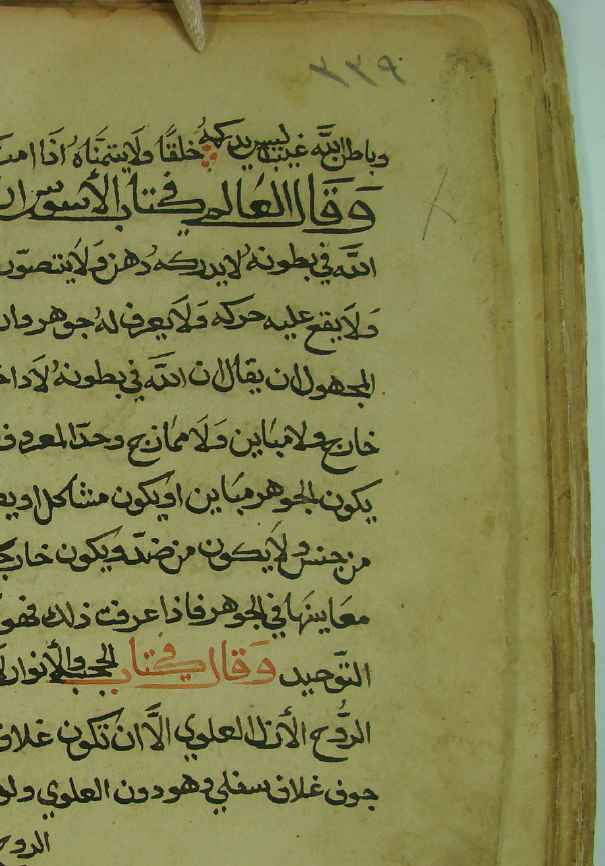 ٣٣٩
وباطن الله غيب ليس يدركه خلقًا ولا يتمنّاه اذا امت
وقال العالم في كتاب الأسوس ان
الله في بطونه لا يدركه ذهن ولا يتصوّر
ولا يقع عليه حركه ولا يعرف له جوهر وان
المجهول ان يقال ان الله في بطونه لا داخ
خارج ولا مباين ولا ممازج وحدّ المعروف
يكون الجوهر مباين او يكون مشاكل او يض
من جنس ولا يكون من ضدّ ويكون خارج
معاينها في الجوهر فاذا عرفت ذلك فهو
التّوحيد وقال في كتاب الحجب والأنوار
الرُّوح الأزل العلوي الاَّ ان تكون غلاف
جوف غلاف سفلي وهو دون العلوي ولو
الروح